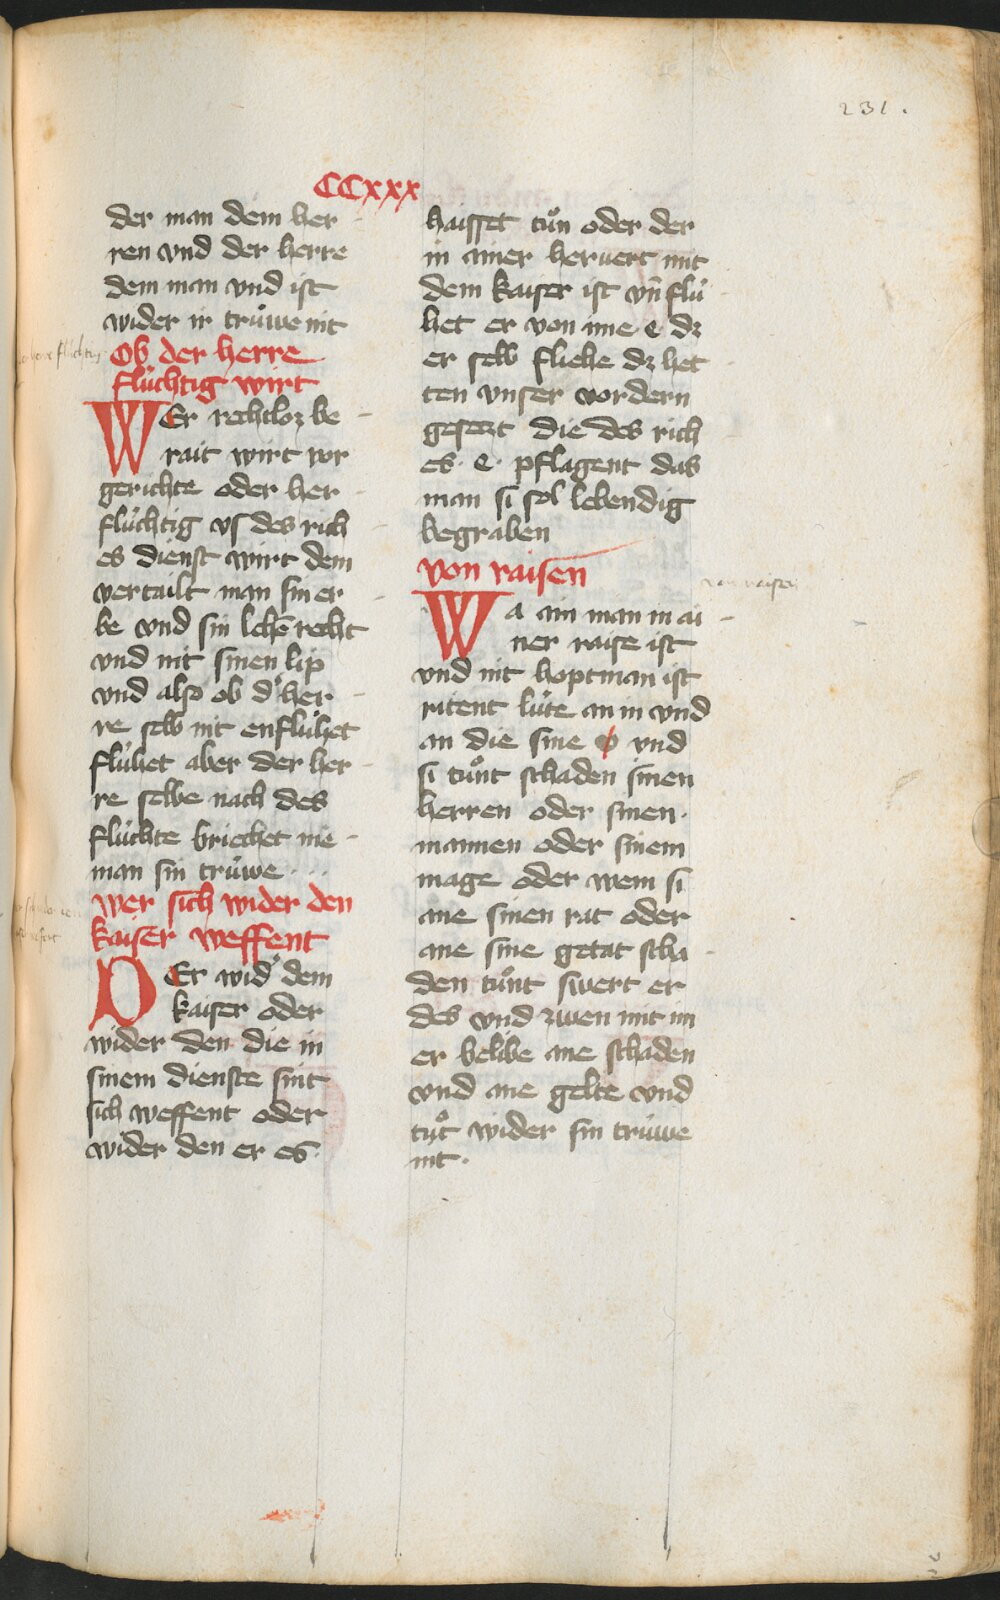 231.
CCxxx
der man dem her
ren vnd der herre
dem man vnd ist
wider ir trüwe nit
Ob der herre
flüchtig wirt
WEr rechtloz be
rait wirt vor
gerichte oder her
flüchtig vs des rich
es dienst wirt dem
vertailt man sin er
be vnd sin lehē recht
vnd nit sinen lip
vnd also ob d' her
re selb nit enflühet
flühet aber der her
re selbe nach des
flüchte brichet nie
man sin trüwe
wer sich wider den
kaiser weffent
DEr wid' dem
kaiser oder
wider den die in
sinem dienste sint
sich weffent oder
wider den er es
haisset tuͦn oder der
in ainer heruert mit
dem kaiser ist vn̄ flü
het er von ime e dz
er selb fliehe dz het
ten vnser vordern
gesetzt die des rich
es e pflagent das
man si sol lebendig
begraben
von raisen
WA ain man in ai
ner raise ist
vnd nit hoptman ist
ritent lüte an in vnd
an die sine vnd
si tuͦnt schaden sinen
herren oder sinen
mannen oder sinem
mage oder wem si
ane sinen rat oder
ane sine getat scha
den tuͦnt swert er
des vnd zwen mit im
er belibe ane schaden
vnd ane gelte vnd
tuͦt wider sin trüwe
nit.